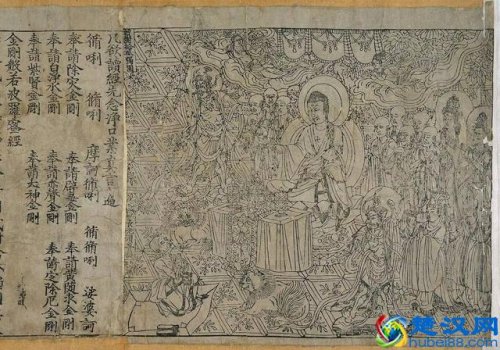 凡欲讀經先念淨口業真言一遍
脩唎 脩唎 摩訶脩唎 脩脩唎 娑婆訶
奉請除災金剛 奉請辟毒金剛 奉請黃隨求金剛
奉請白淨水金剛 奉請赤聲金剛 奉請定除厄金剛
奉請紫賢金剛 奉請大神金剛
金剛般若波羅蜜經
楚汉网
hubei88.com